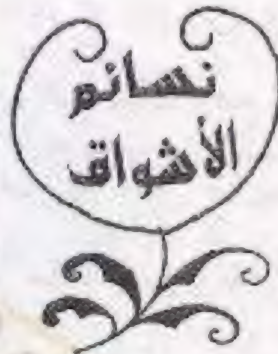 نسائم
الأشواق